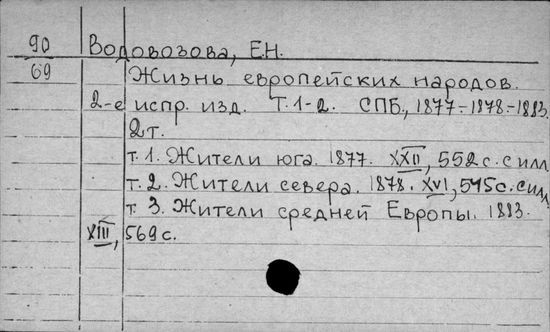 90 Водовозова, Е.Н.
69 Жизнь европейских народов.
2-е испр. изд. Т. 1-2. СПБ, 1877-1878-1883.
2 т.
т. 1. Жители юга. 1877. XXII, 552 с. с илл
т. 2. Жители севера. 1878. XVI, 545 с. с илл
т. 3. Жители средней Европы. 1883.
XIII, 569 с.